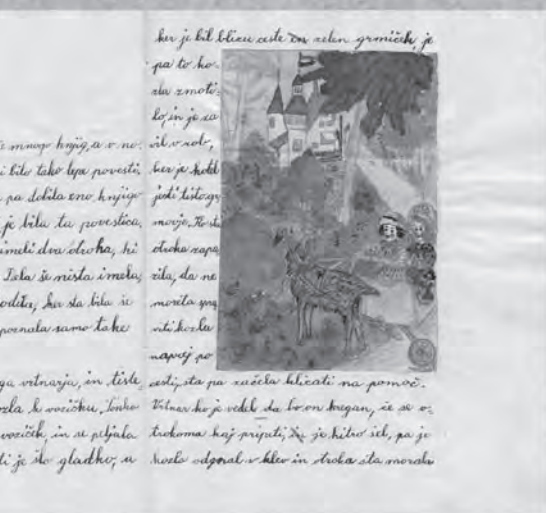 mnogo knjig, a v no-
bilo tako lepe povesti,
pa dobila eno knjigo
je bila ta povestica,
imeli dva otroka, ki
Dela še nista imela,
ker sta bila iz
poznala samo take
vrtnarja, in tiste
k vozičku, lonko
voziček, in se peljala
je šlo gladko, a
ker je bil blizu ceste en zelen grmiček, je
pa to ko-
zla zmoti-
lo, in je za
vil v rob,
ker je hotel
jesti tisto gr
movje. Ko sta
otroka zapa
zila, da ne
moreta spra
viti kozla
nazaj po
cesti, sta pa začela klicati na pomoč.
Vrtnar ko je vedel da bo on kregan, če se o-
trokoma kaj pripeti, je hitro šel, pa je
kozla odgnal v hlev in otroka sta morala